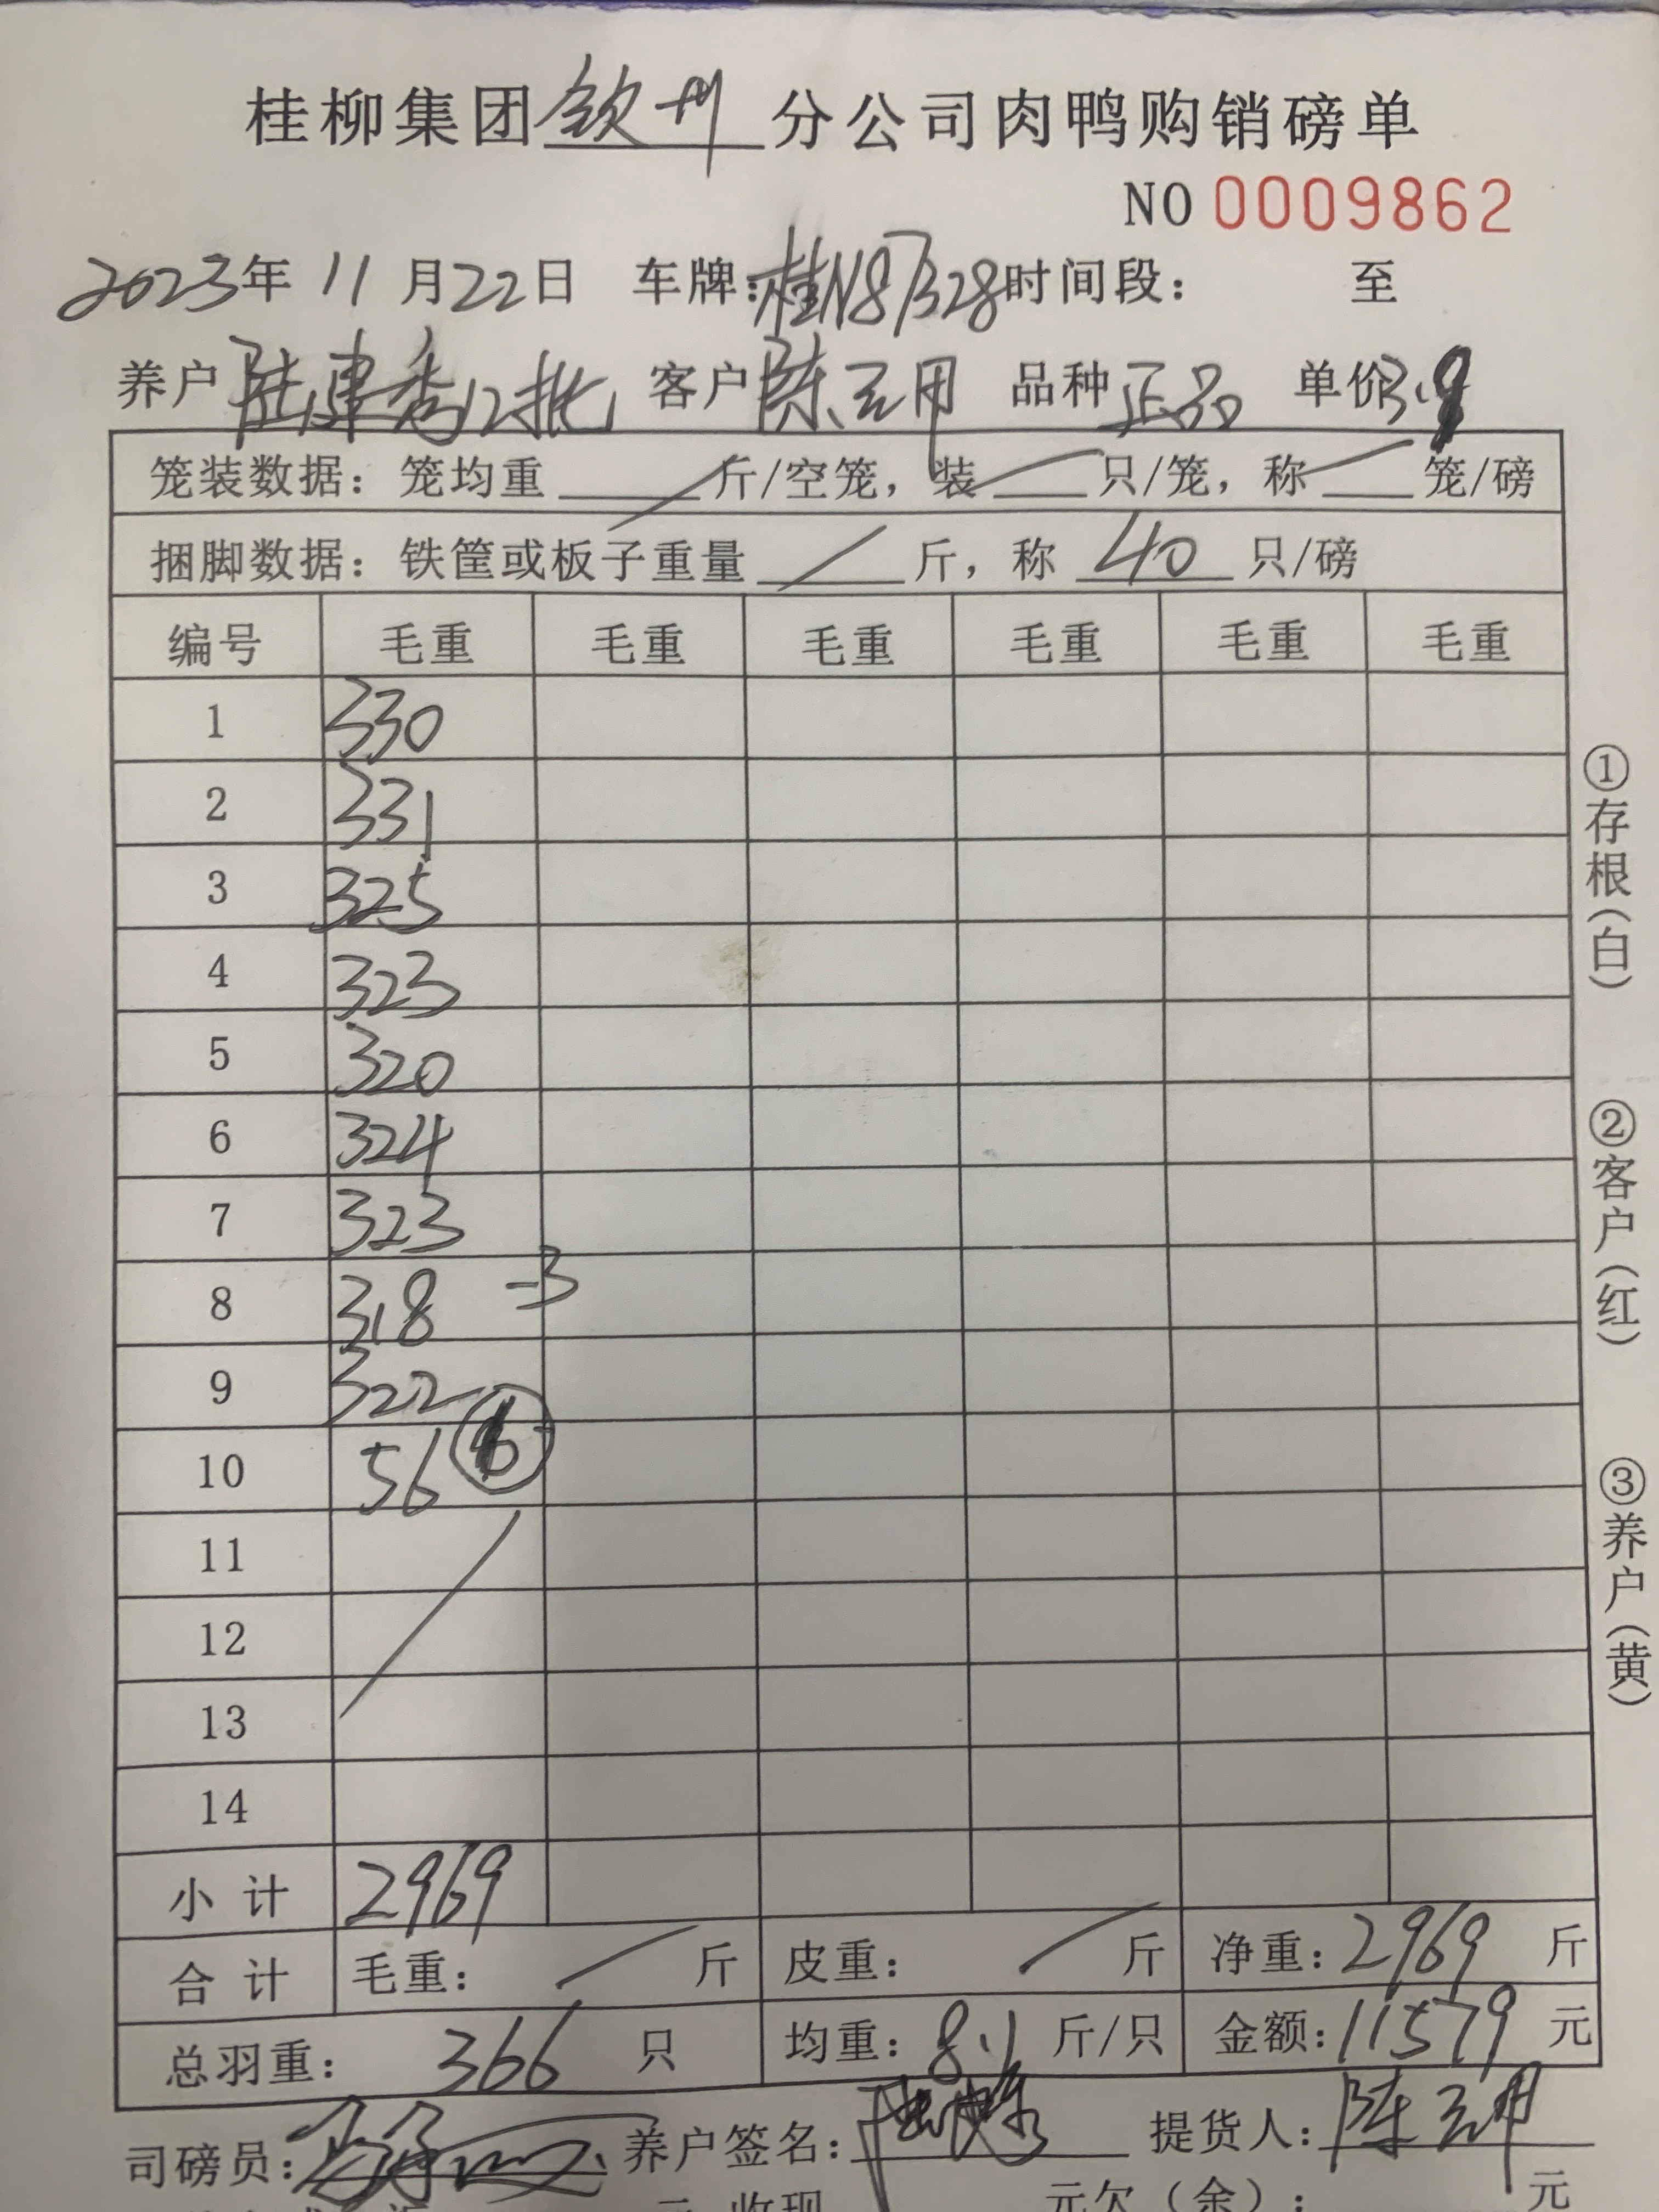 桂柳集团钦州分公司肉鸭购销磅单
NO 0009862
2023年 11月22日 车牌:桂N87328时间段: 至
养户 陆建香12批 客户 陈云用 品种 正品 单价3.9
笼装数据: 笼均重 / 斤/空笼, 装 / 只/笼, 称 / 笼/磅
捆脚数据: 铁筐或板子重量 / 斤, 称 40 只/磅
编号 毛重 毛重 毛重 毛重 毛重 毛重
1 330
2 331
3 325
4 323
5 320
6 324
7 323
8 318 -3
9 322
10 56 6
11
12
13
14
小 计 2969
合 计 毛重: / 斤 皮重: / 斤 净重:2969 斤
总羽重: 366 只 均重: 8.1 斤/只 金额:11579 元
司磅员: 养户签名: 提货人: 陈云用
元 收现 元欠(余): 元
①存根(白)
②客户(红)
③养户(黄)